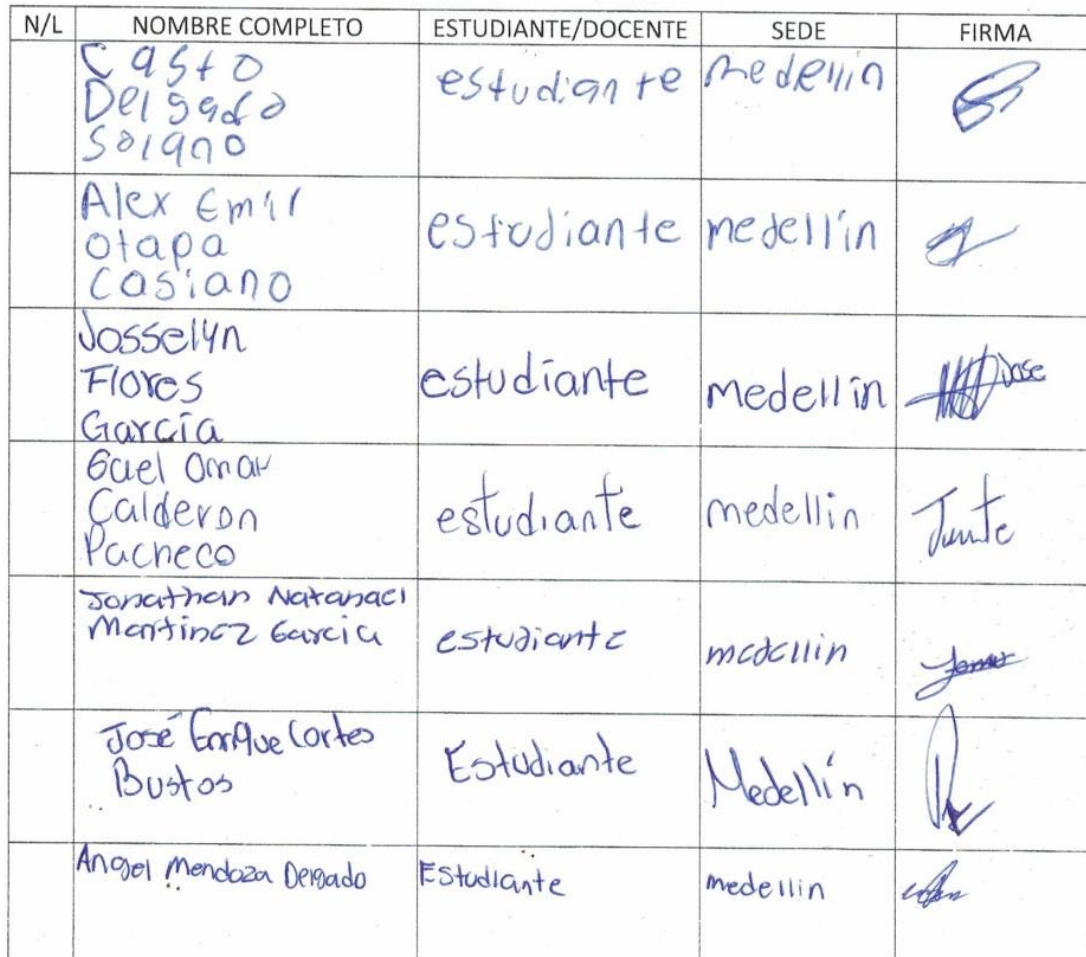 N/L NOMBRE COMPLETO ESTUDIANTE/DOCENTE SEDE FIRMA
Casto
Delgado
Solano
estudiante medellin
Alex Emir
Otapa
Casiano
estudiante medellín
Josselyn
Flores
García
estudiante medellin
Jose
Gael Omar
Calderon
Pacheco
estudiante medellin
Jonathan Natanael
Martinez Garcia
estudiante medellin
José Enrique Cortes
Bustos
Estudiante Medellín
Angel Mendoza Delgado Estudiante medellin